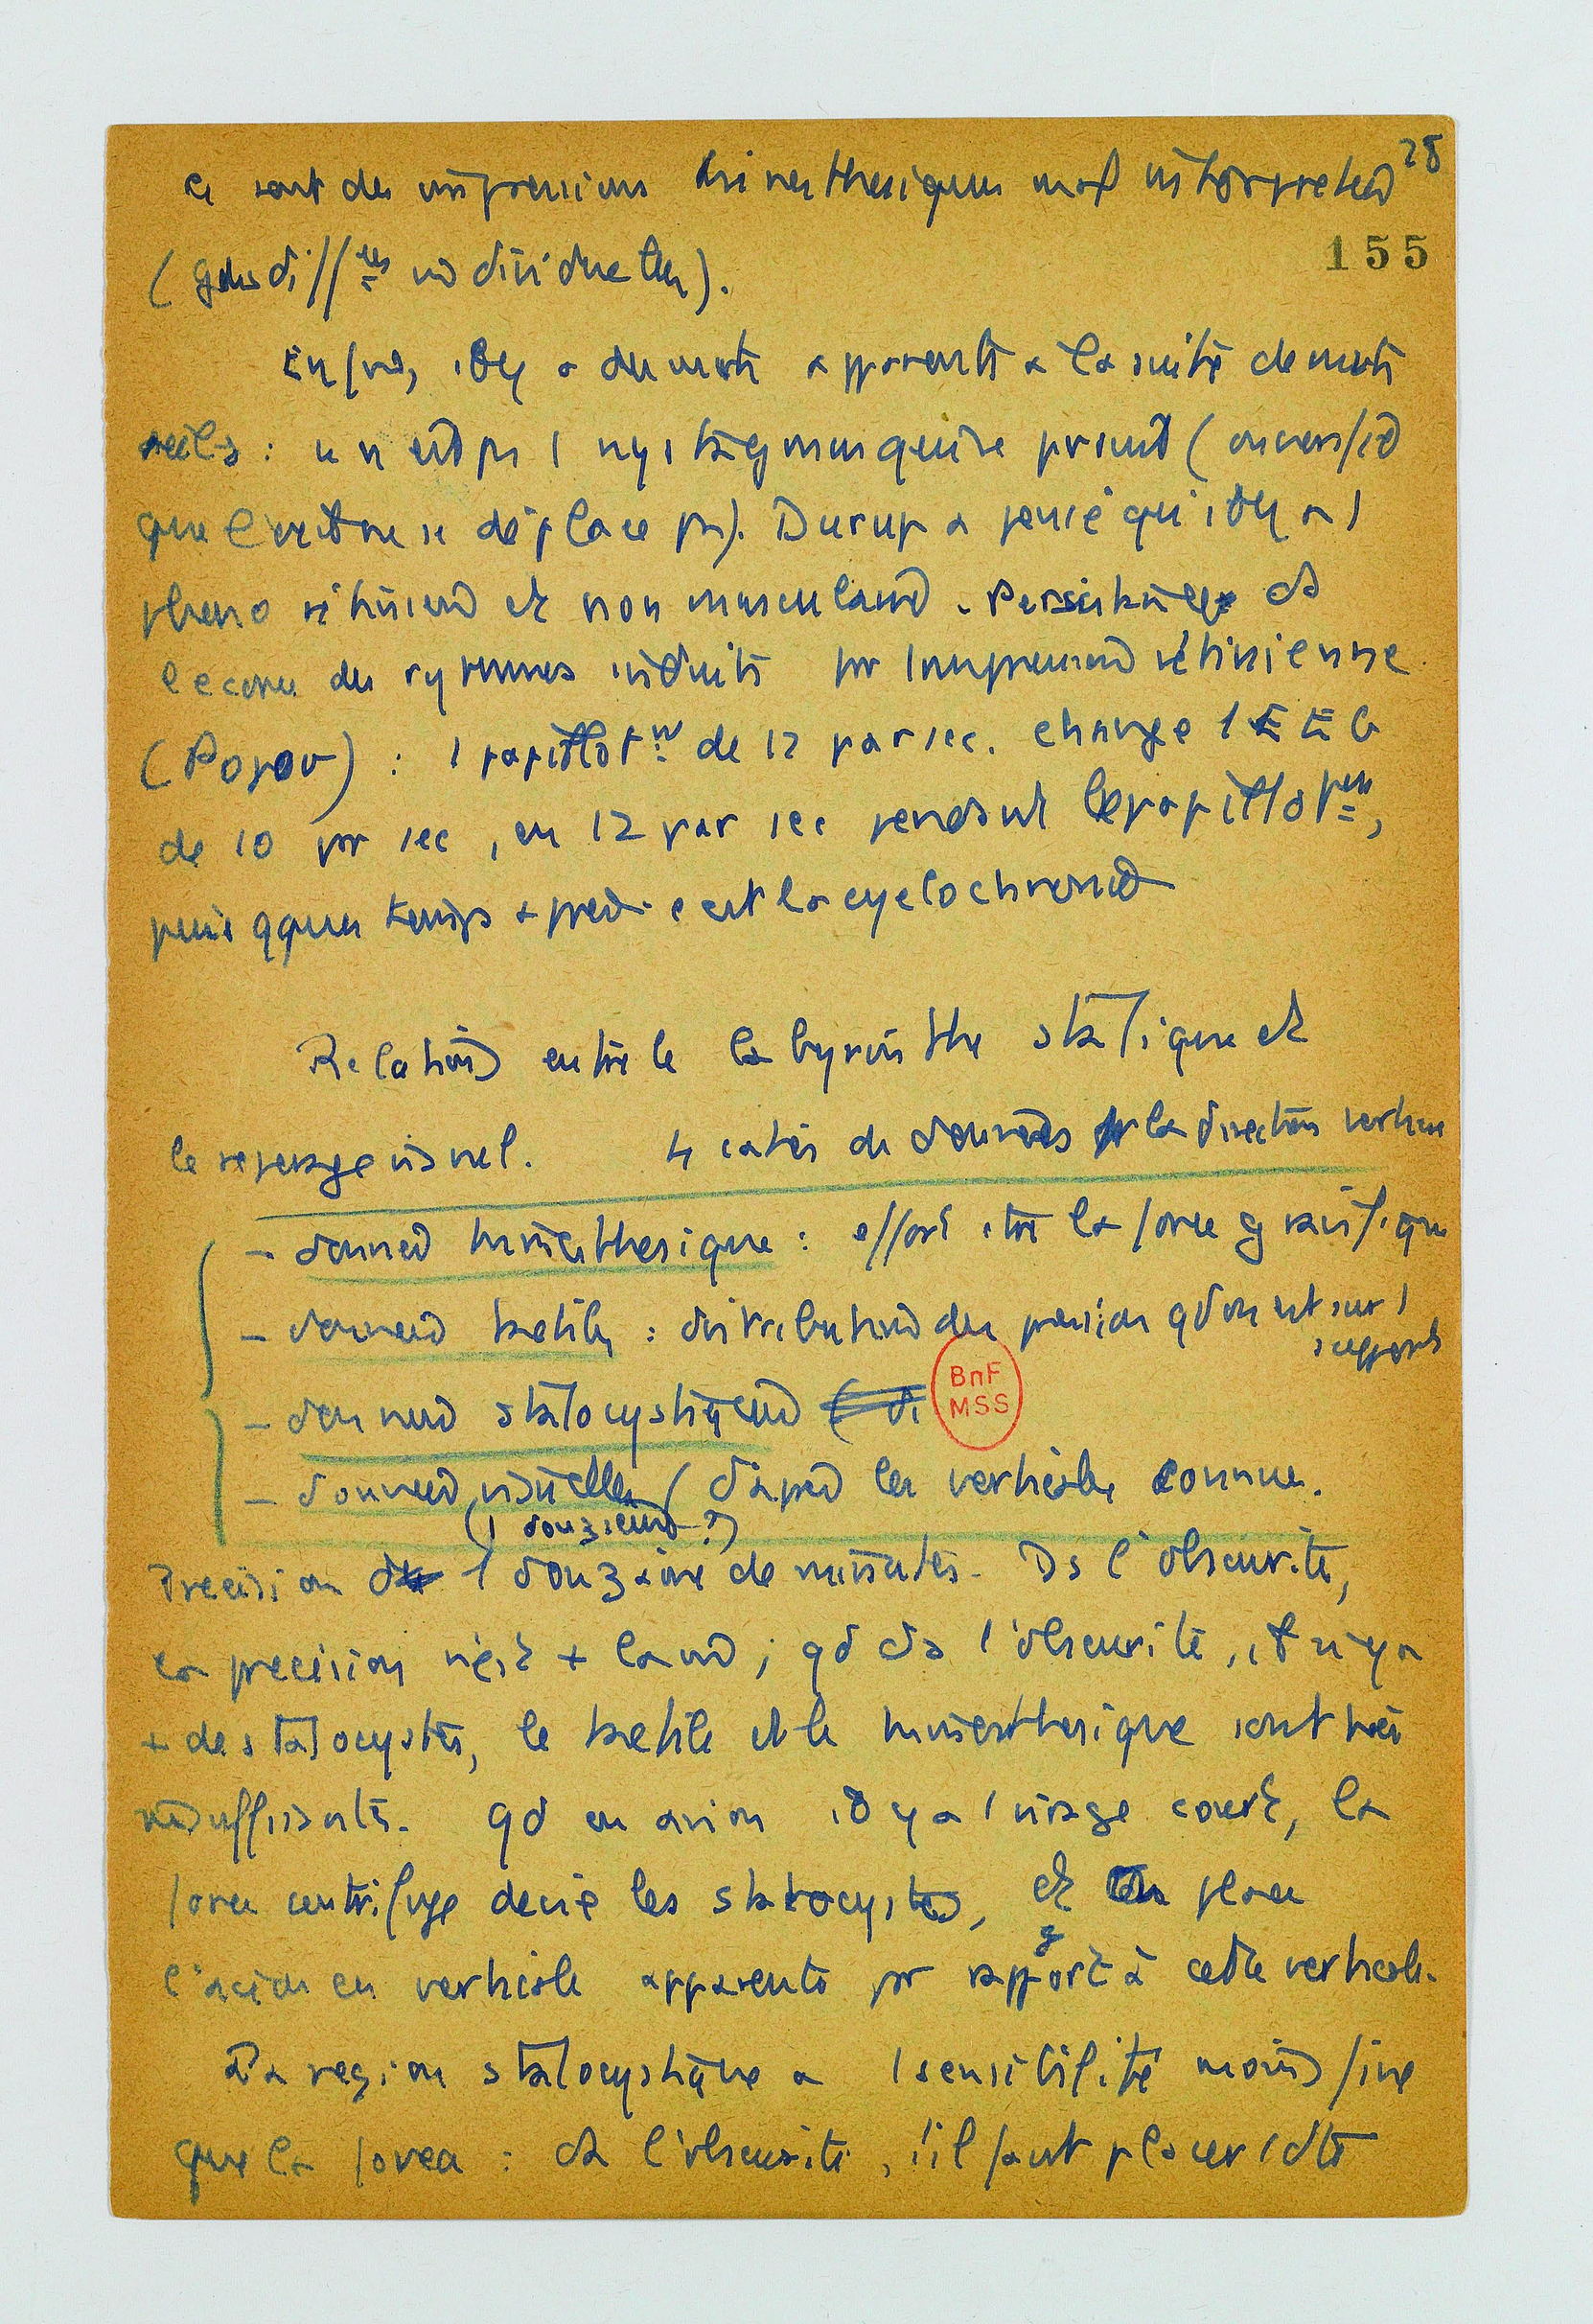 28
ce sont des impressions kinesthésiques mal interprétées
155
(gdes diff^ces individuelles).
Enfin, il y a des mvts apparents à la suite de mvts
réels : ce n'est pas 1 nystagmus qui se produit (on vérifie
que l'œil ne se déplace pas). Durup a pensé qu'il y a 1
phéno rétinien et non musculaire. Persistance ds
le cortex des rythmes induits par l'impression rétinienne
(Popov) : 1 papillot^nt de 12 par sec. change 1 E E G
de 10 par sec, en 12 par sec pendant le papillot^nt,
puis qques temps après. c'est la cyclochronie
Relations entre le labyrinthe statique et
le repérage visuel. 4 catés de données sur la direction verticale
- données kinesthésiques : effort contre la force gravifique
- données tactiles : distribution des pressions qd on est sur 1
support
- données statocystiques
- données visuelles (d'après les verticales connues.
(1 douzième ?)
Précision de 1 douzaine de minutes. Ds l'obscurité,
la précision n'est + la même ; qd ds l'obscurité, il n'y a
+ de statocystes, le tactile et le kinesthésique sont très
insuffisants. Qd en avion il y a 1 virage court, la
force centrifuge dévie les statocystes, et on place
l'avion en verticale apparente par rapport à cette verticale.
La région statocystique a 1 sensibilité moins fine
que la fovea : ds l'obscurité, s'il faut placer 1 droite